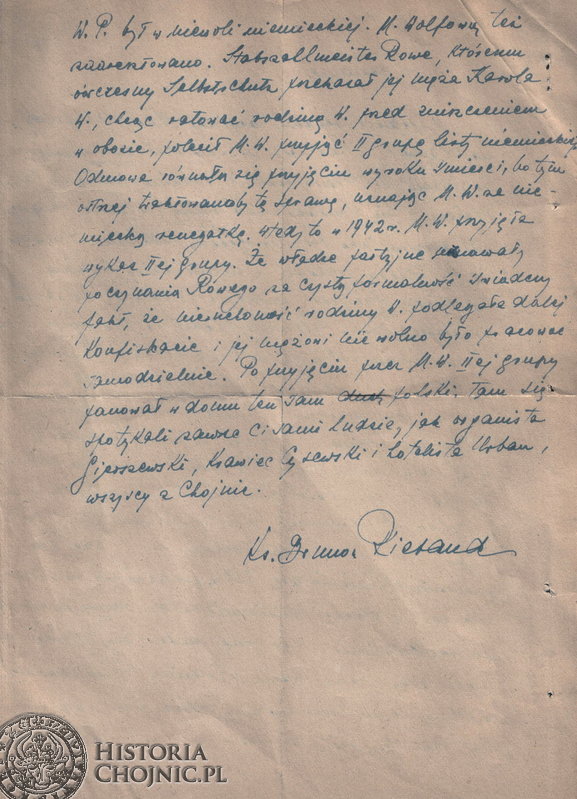 W. P. był w niewoli niemieckiej. M. Wolfową też
zaaresztowano. Stabszallmeister Rowe, któremu
ówczesny Selbstschutz przekazał jej męża Karola
W., chcąc ratować rodzinę W. przed zniszczeniem
w obozie, polecił M. W. przyjąć II grupę listy niemieckiej.
Odmowa równała się przyjęciu wyroku śmierci, bo tym
ostrzej traktowanoby tę sprawę, uznając M. W. za nie-
miecką renegatkę. Wtedy to w 1942 r. M. W. przyjęła
wykaz II ej grupy. Że władze partyjne uznawały
poczynania Rowego za czystą formalność świadczy
fakt, że nieruchomość rodziny W. podlegała dalej
Konfiskacie i jej mężowi nie wolno było pracować
samodzielnie. Po przyjęciu przez M. W. II ej grupy
panował w domu ten sam duch polski. Tam się
spotykali zawsze ci sami ludzie, jak organista
Gierszewski, Krawiec Cysewski i Urban,
wszyscy z Chojnic.
Ks.
HISTORIA
CHOJNIC.PL